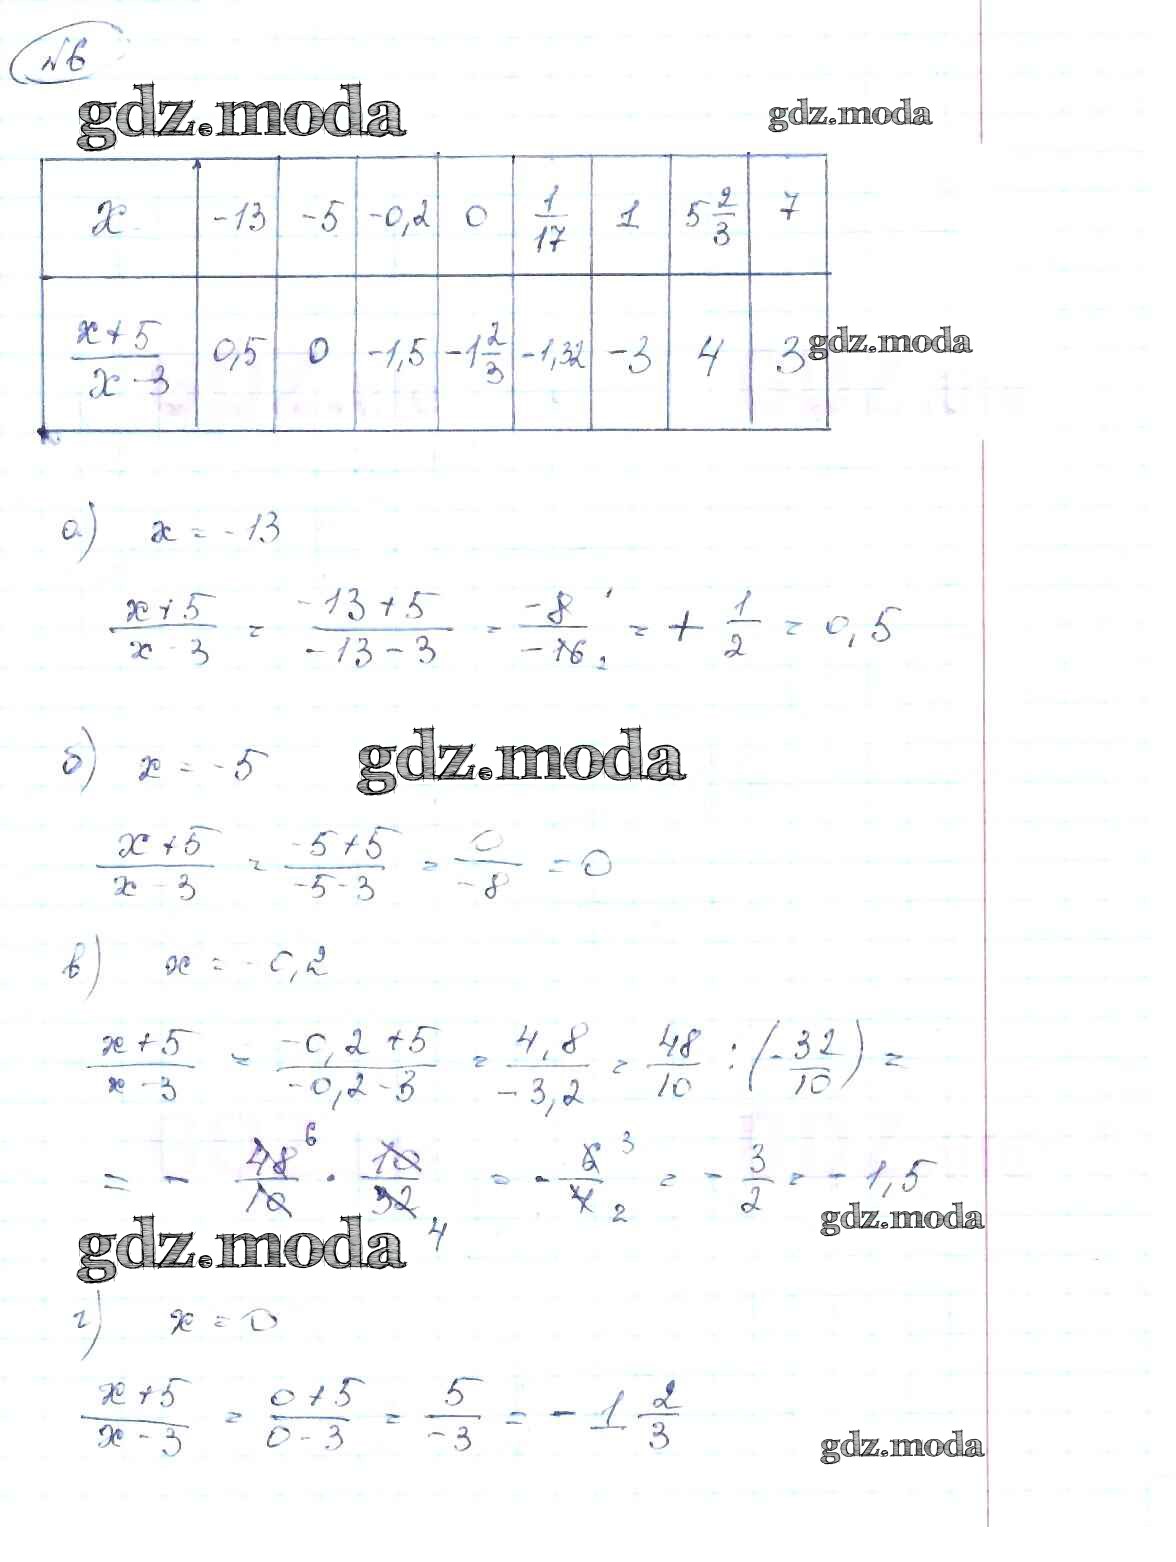 №6
gdz.moda gdz.moda
x -13 -5 -0,2 0 1/17 1 5 2/3 7
(x+5)/(x-3) 0,5 0 -1,5 -1 2/3 -1,32 -3 4 3 gdz.moda
а) x = -13
(x+5)/(x-3) = (-13+5)/(-13-3) = -8 1/-16 2 = + 1/2 = 0,5
б) x = -5 gdz.moda
(x+5)/(x-3) = (-5+5)/(-5-3) = 0/-8 = 0
в) x = -0,2
(x+5)/(x-3) = (-0,2+5)/(-0,2-3) = 4,8/-3,2 = 48/10 : (-32/10) =
= - 48 6/10 · 10/32 4 = - 6 3/4 2 = - 3/2 = -1,5
gdz.moda gdz.moda
г) x = 0
(x+5)/(x-3) = (0+5)/(0-3) = 5/-3 = -1 2/3
gdz.moda